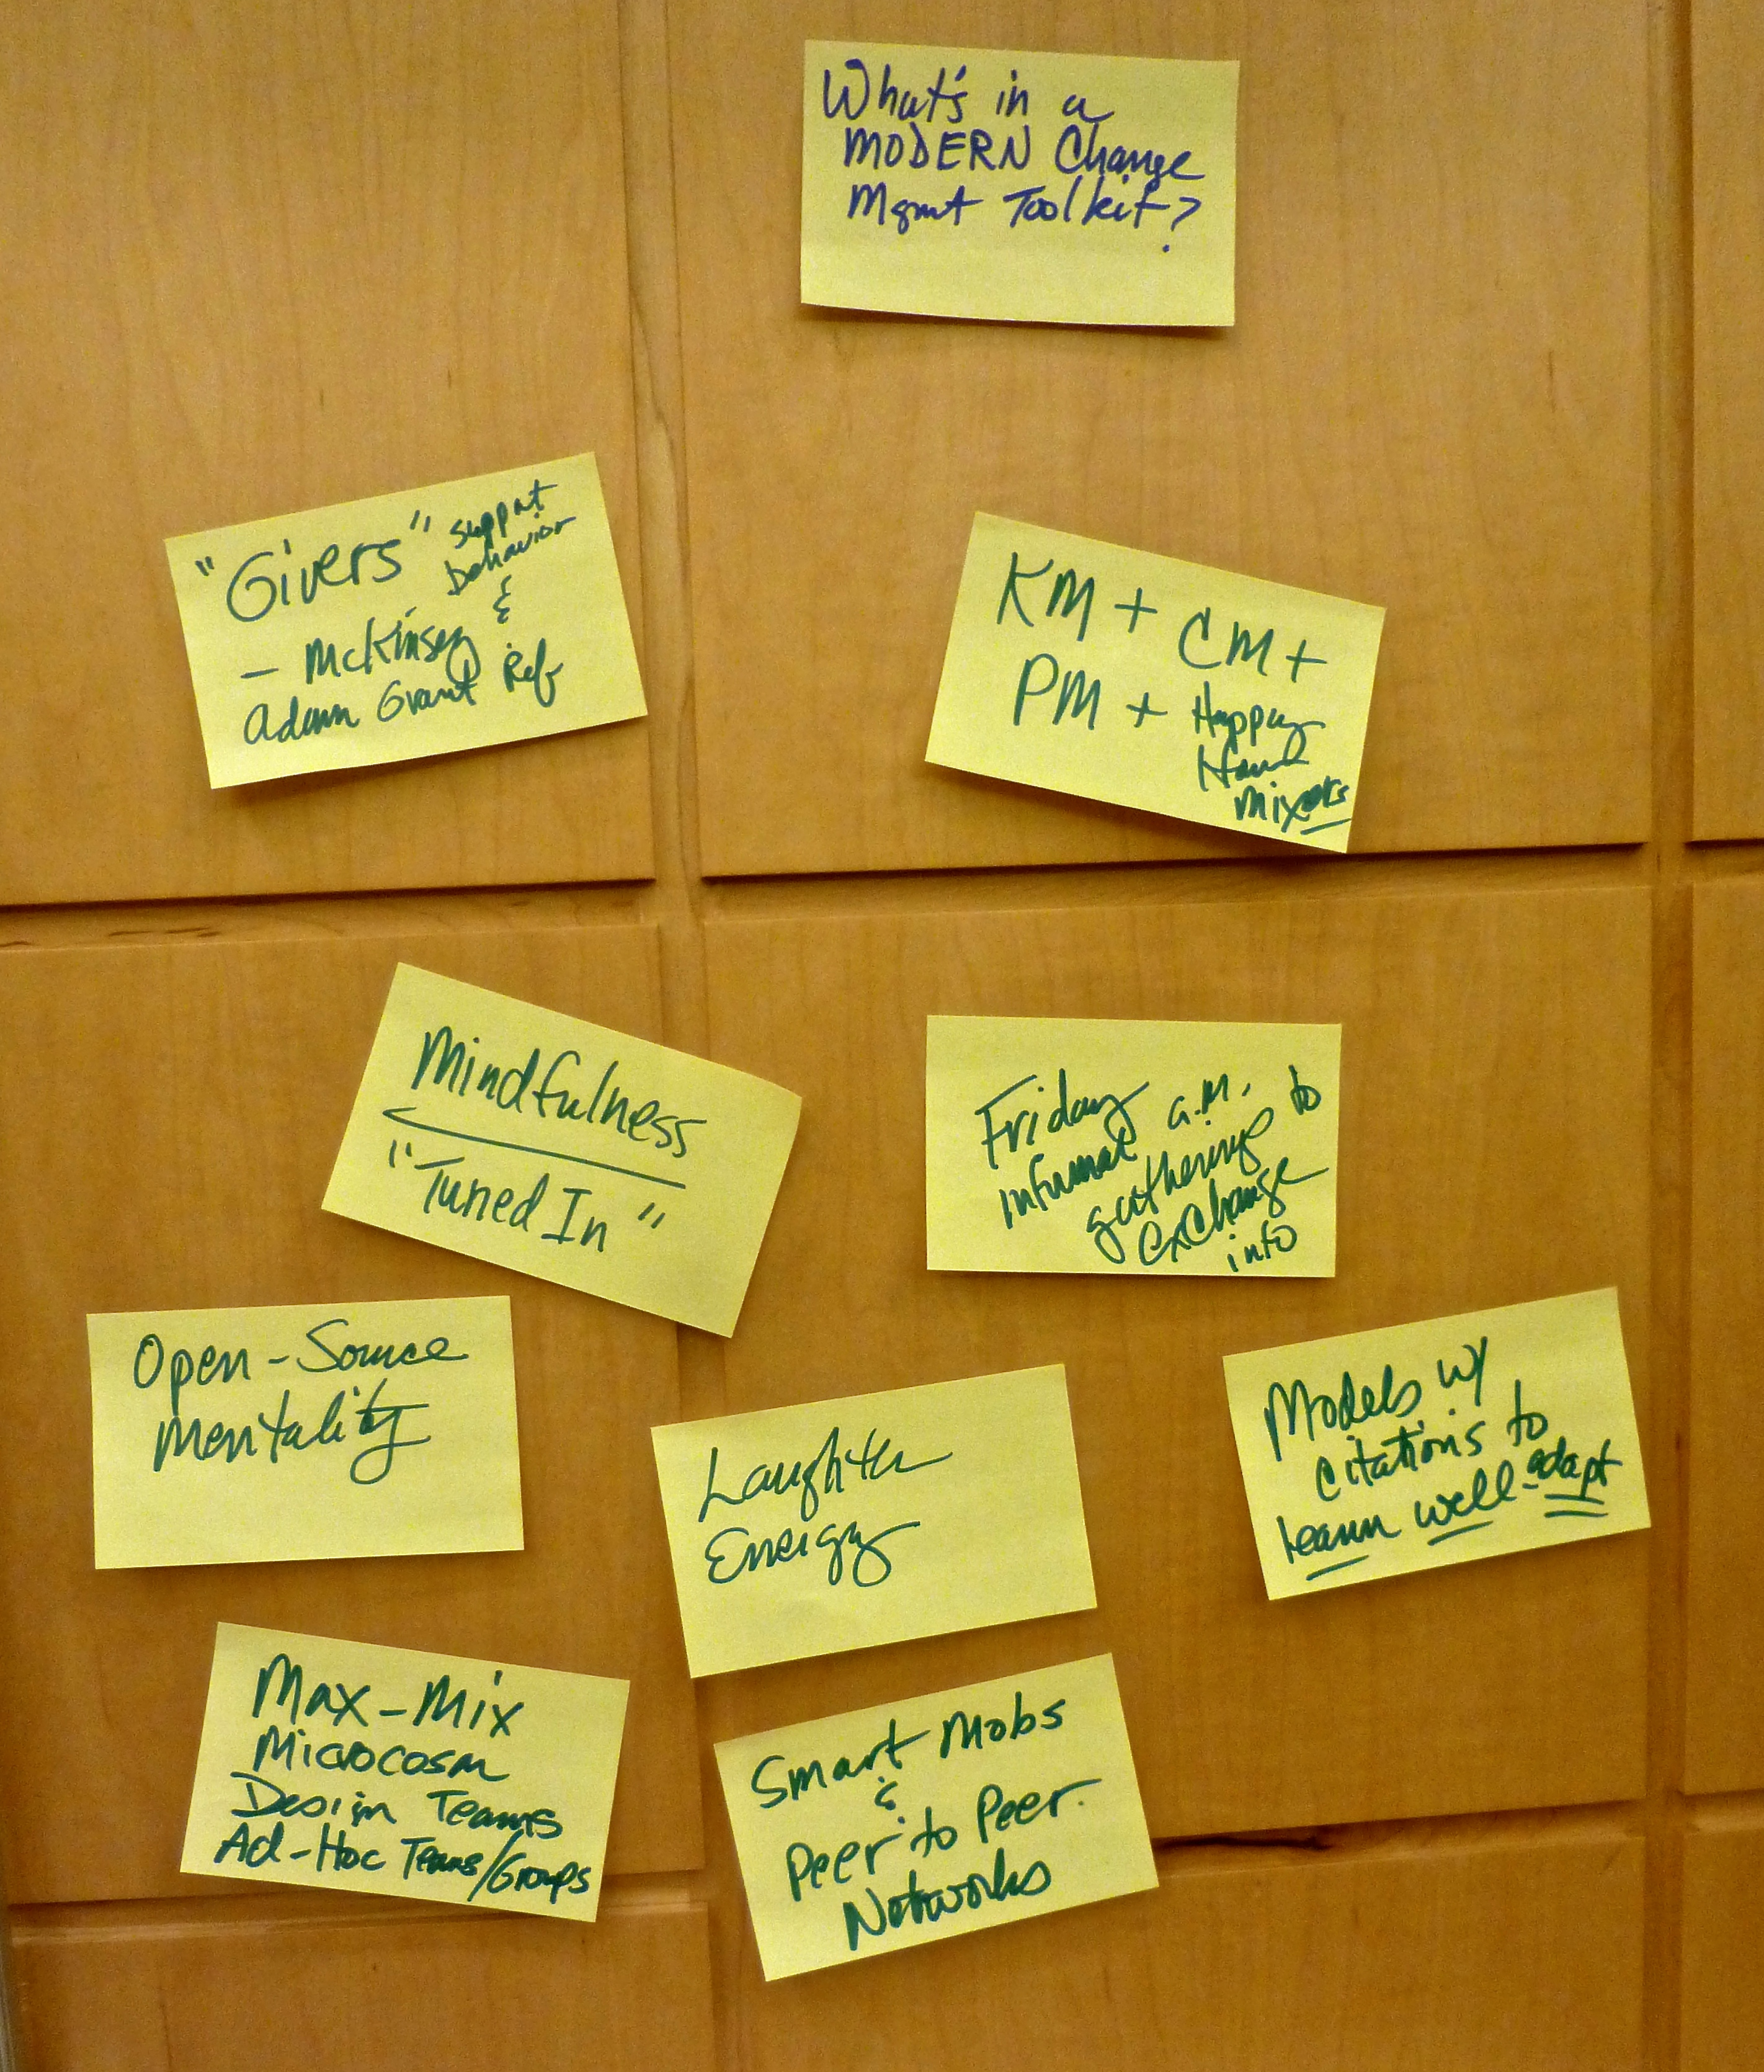 What's in a
MODERN Change
Mgmt Toolkit?
"Givers" support
behavior
&
- McKinsey
Adam Grant Ref
KM + CM +
PM + Happy
Hour
mixers
Mindfulness
"Tuned In"
Friday a.m.
informal
gatherings to
exchange
info
Open-Source
Mentality
Laughter
Energy
Models w/
citations to
learn well-adapt
Max-Mix
Microcosm
Design Teams
Ad-Hoc Teams/Groups
Smart Mobs
&
Peer to Peer
Networks